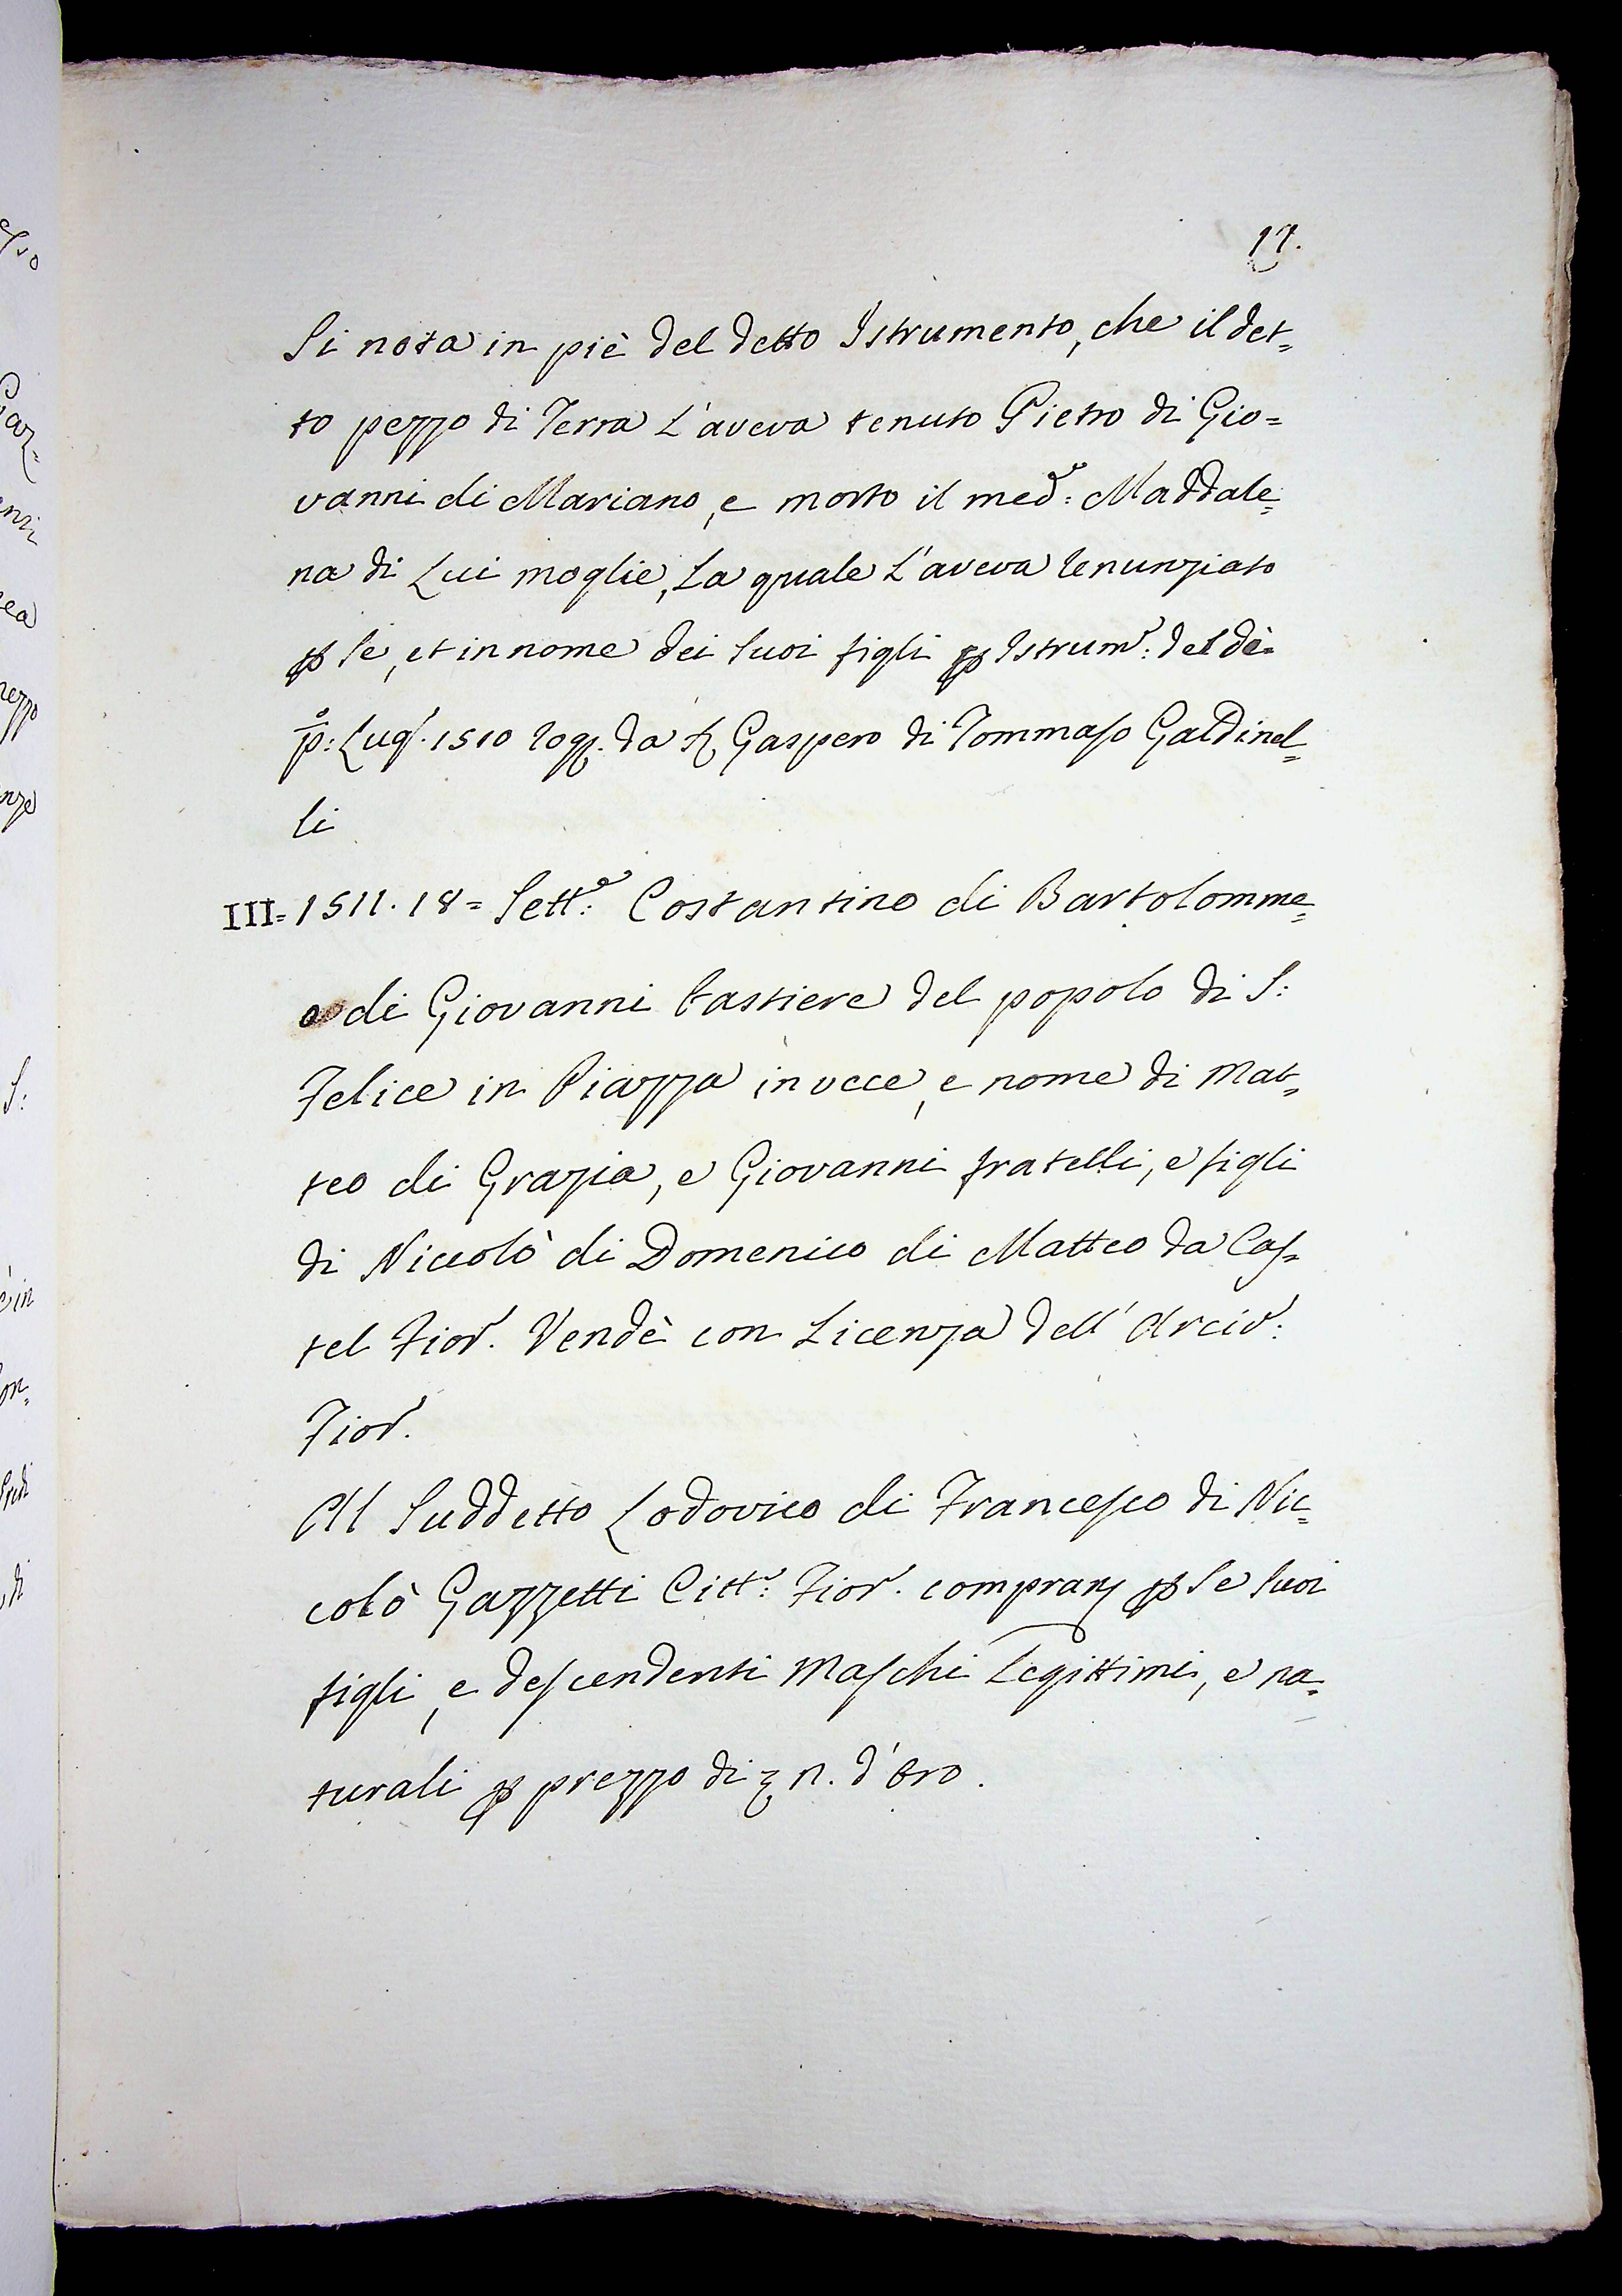 17.
Si nota in piè del detto Istrumento, che il det=
to pezzo di Terra l'aveva tenuto Pietro di Gio=
vanni di Mariano, e morto il med.º: Maddale=
na di Lui moglie, la quale l'aveva renunziato
p se, et in nome dei suoi figli p Istrum.º: del dì=
p.º: Lug.º. 1510 rog. da S. Gaspero di Tommaso Galdinel=
li
III= 1511. 18= Sett.e: Costantino di Bartolomme=
o di Giovanni Pastiere del popolo di S:
Felice in Piazza in vece, e nome di Mat=
teo di Grazia, e Giovanni fratelli, e figli
di Niccolò di Domenico di Matteo da Cas=
tel Fior.º. Vendè con Licenza dell' Arciv.º:
Fior.º.
Al Suddetto Lodovico di Francesco di Nic=
colò Gazzetti Citt.º: Fior.º. compran p se suoi
figli, e descendenti Maschi Legittimi, e na=
turali p prezzo di n. d'Oro.